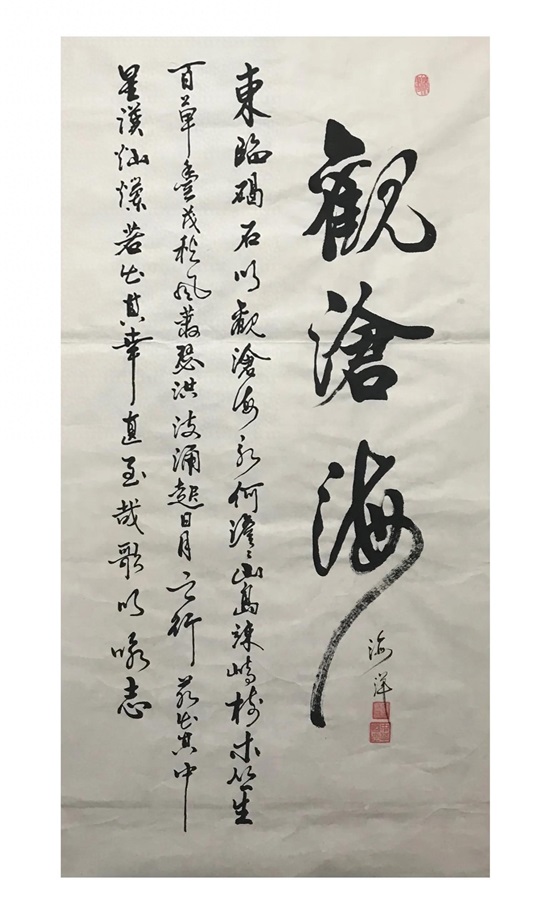 觀滄海
海洋
東臨碣石以觀滄海水何澹〻山島竦峙樹木丛生
百草豐茂秋風蕭瑟洪波涌起日月之行若出其中
星漢灿爛若出其幸甚至哉歌以咏志